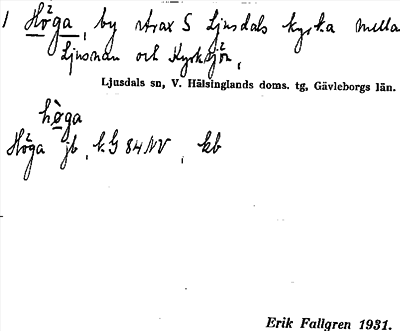 1 Höga, by strax S Ljusdals kyrka mella
Ljusnan och Kyrksjön,
Ljusdals sn, V. Hälsinglands doms. tg, Gävleborgs län.
hò̀ga
Höga jb, k.G 84 NV, kb
Erik Fallgren 1931.